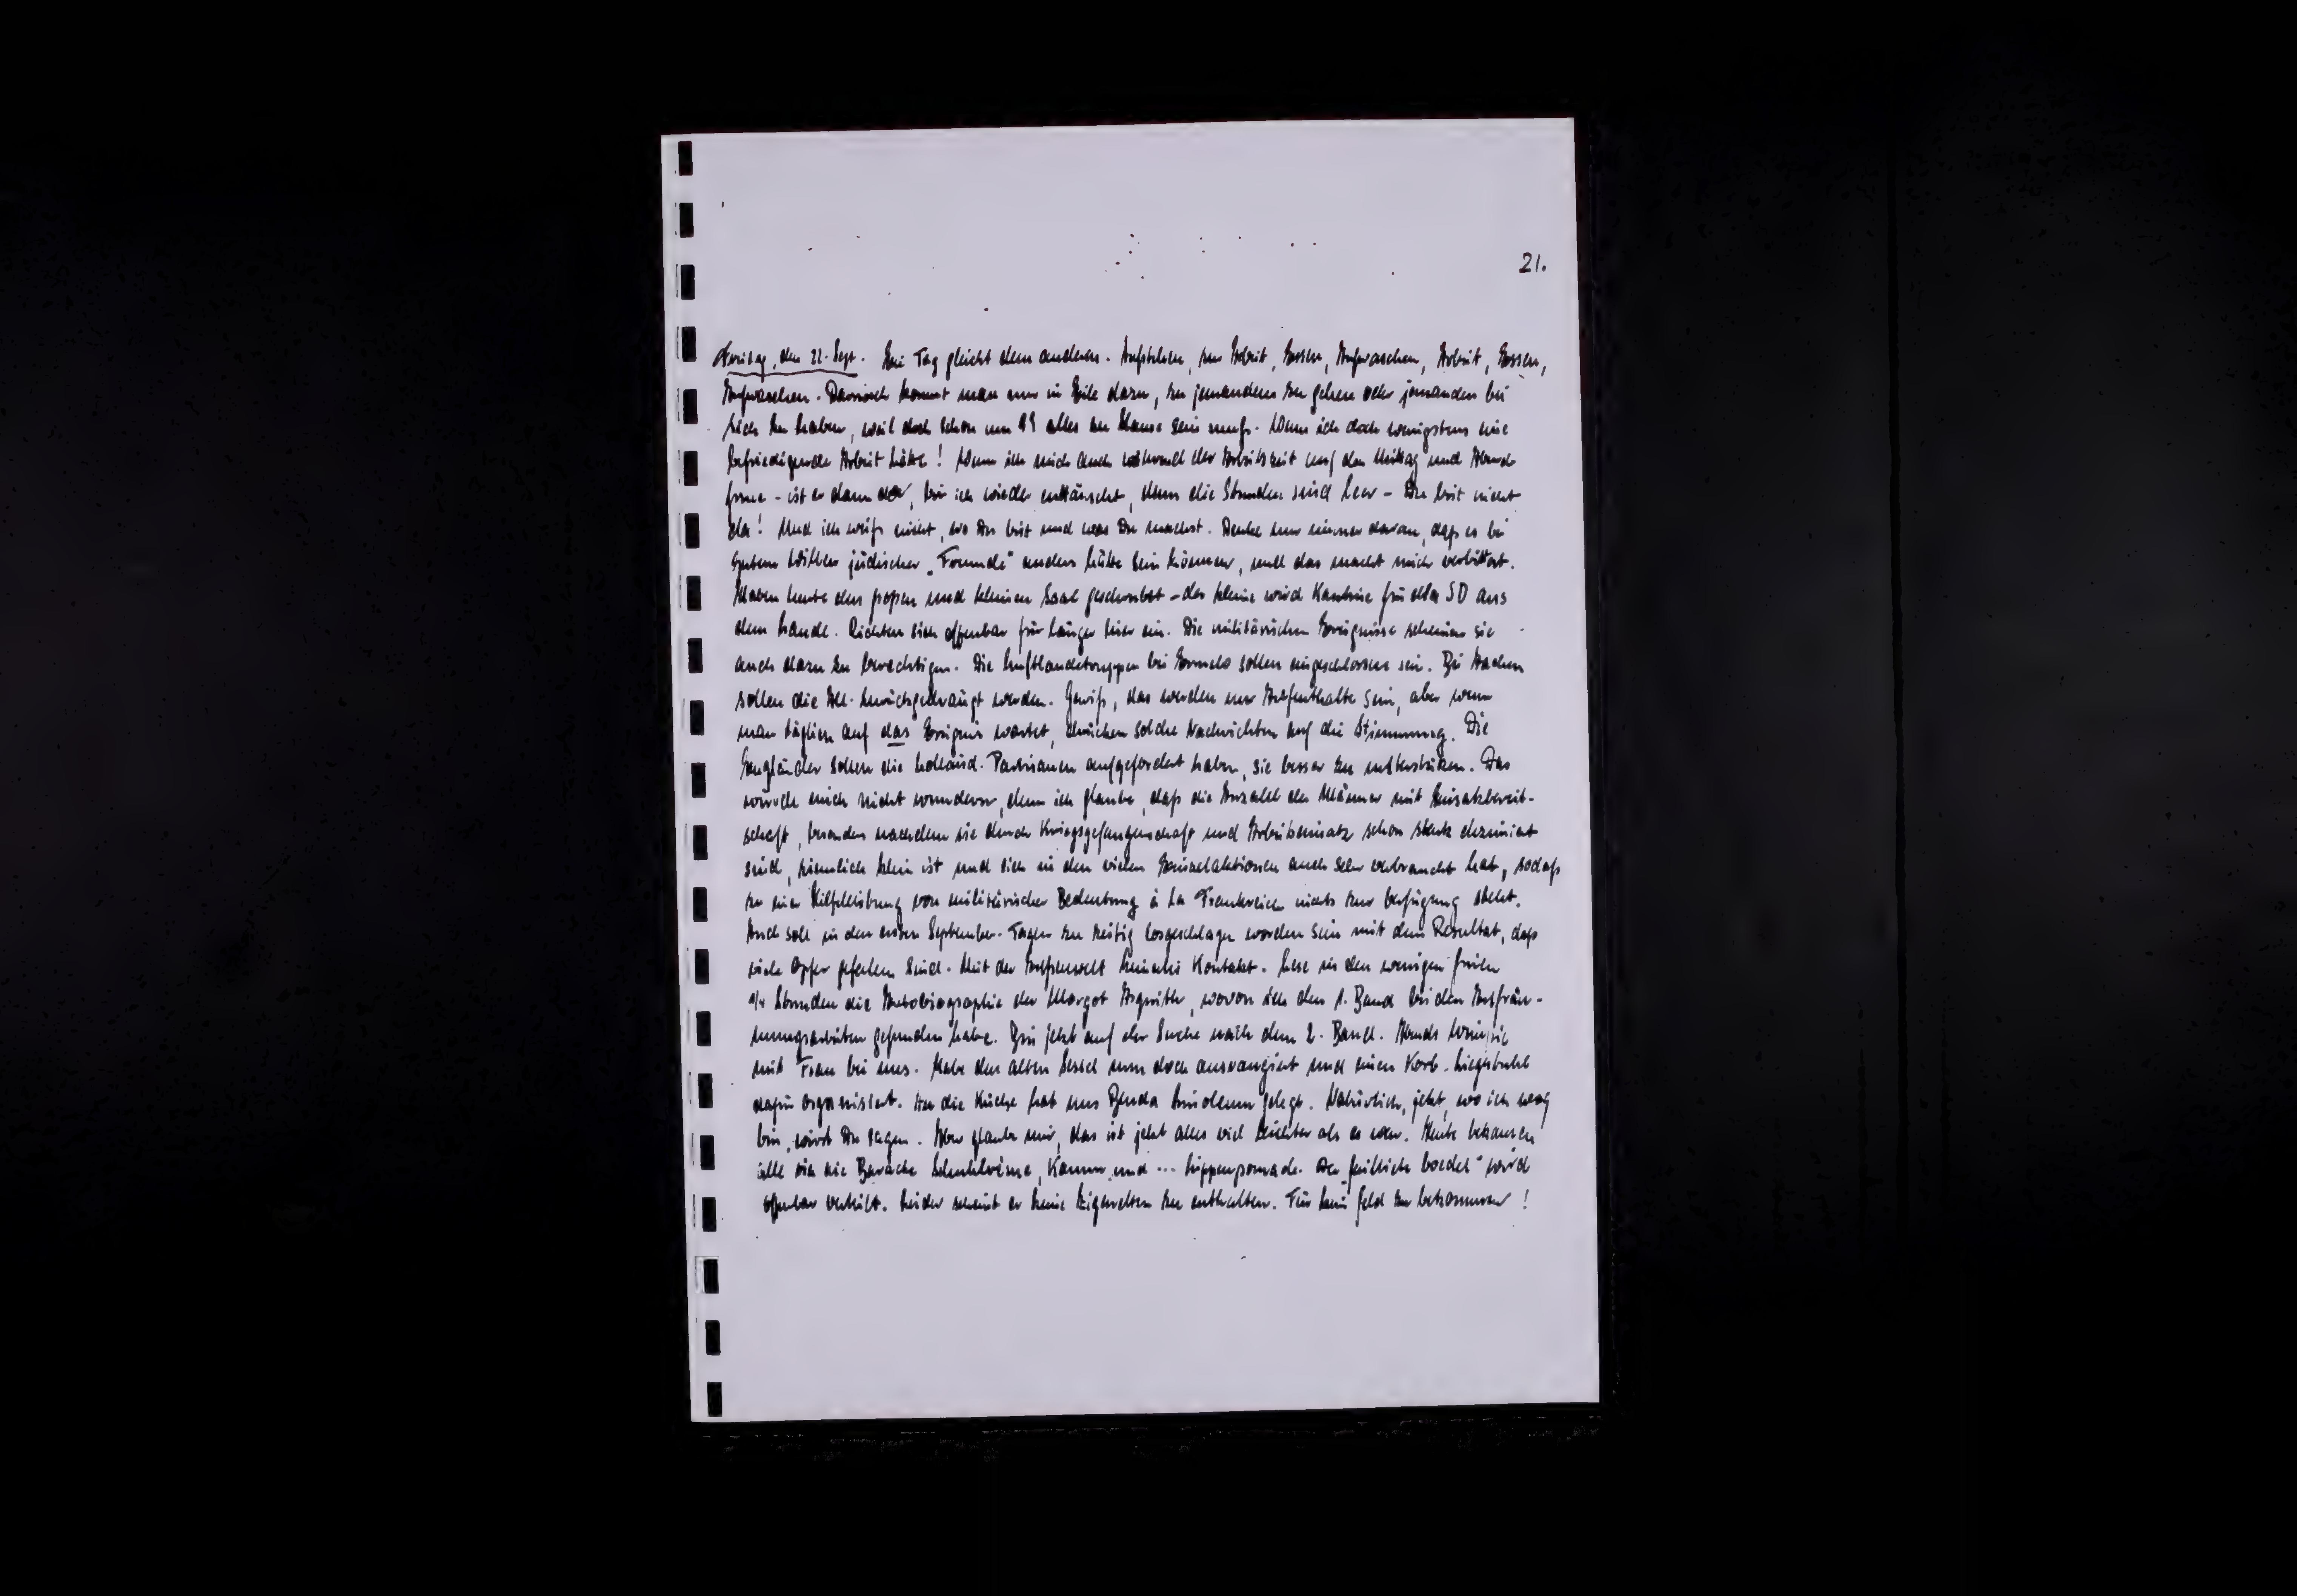 21.
Freitag, den 22. Sept. Ein Tag gleicht dem anderen. Aufstehen, zur Arbeit, Essen, Aufwaschen, Arbeit, Essen,
Aufwaschen. Danach kommt man nur in Eile dazu, zu jemandem zu gehen oder jemanden bei
sich zu haben, weil doch schon um 9 alles zu Hause sein muß. Wenn ich doch wenigstens eine
befriedigende Arbeit hätte! Wenn ich mich auch während der Arbeitszeit auf den Mittag und Abend
freue - ist er dann da, bin ich wieder enttäuscht, denn die Stunden sind leer - Du bist nicht
da! Und ich weiß nicht, wo Du bist und was Du machst. Denke nur immer daran, daß es bei
gutem Willen jüdischer „Freunde" anders hätte sein können, und das macht mich verbittert.
Haben heute den großen und kleinen Saal geschrubbt - der kleine wird Kantine für den SD aus
dem Lande. Richten sich offenbar für länger hier ein. Die militärischen Ereignisse scheinen sie
auch dazu zu berechtigen. Die Luftlandetruppen bei sollen eingeschlossen sein. Bei Aachen
sollen die All. zurückgedrängt werden. Gewiß, das werden nur Aufenthalte sein, aber wenn
man täglich auf das Ereignis wartet, drücken solche Nachrichten auf die Stimmung. Die
Engländer sollen die holländ. Partisanen aufgefordert haben, sie besser zu unterstützen. Das
würde mich nicht wundern, denn ich glaube, daß die Anzahl der Männer mit Einsatzbereit-
schaft, besonders nachdem sie durch Kriegsgefangenschaft und Arbeitseinsatz schon stark dezimiert
sind, ziemlich klein ist und sich in den vielen Einzelaktionen auch sehr verbraucht hat, sodaß
zu einer Hilfeleistung von militärischer Bedeutung à la Frankreich nichts zur Verfügung steht.
Auch soll in den ersten September-Tagen zu zeitig losgeschlagen worden sein mit dem Resultat, daß
viele Opfer gefallen sind. Mit der Außenwelt keinerlei Kontakt. Lese in den wenigen freien
1/4 Stunden die Autobiographie der Margot Asquith, wovon ich den 1. Band bei den Aufräu-
mungsarbeiten gefunden habe. Bin jetzt auf der Suche nach dem 2. Band. Abends
mit Frau bei uns. Habe den alten Sessel nun doch ausrangiert und einen Korb-Liegestuhl
dafür organisiert. In die Küche hat uns Benda Linoleum gelegt. Natürlich, jetzt, wo ich weg
bin, wirst Du sagen. Aber glaube mir, das ist jetzt alles viel leichter als es war. Heute bekamen
alle für die Baracke Schuhkrème, Kamm und ... Lippenpomade. Der boedel" wird
offenbar verteilt. Leider scheint er keine Zigaretten zu enthalten. Für kein Geld zu bekommen!